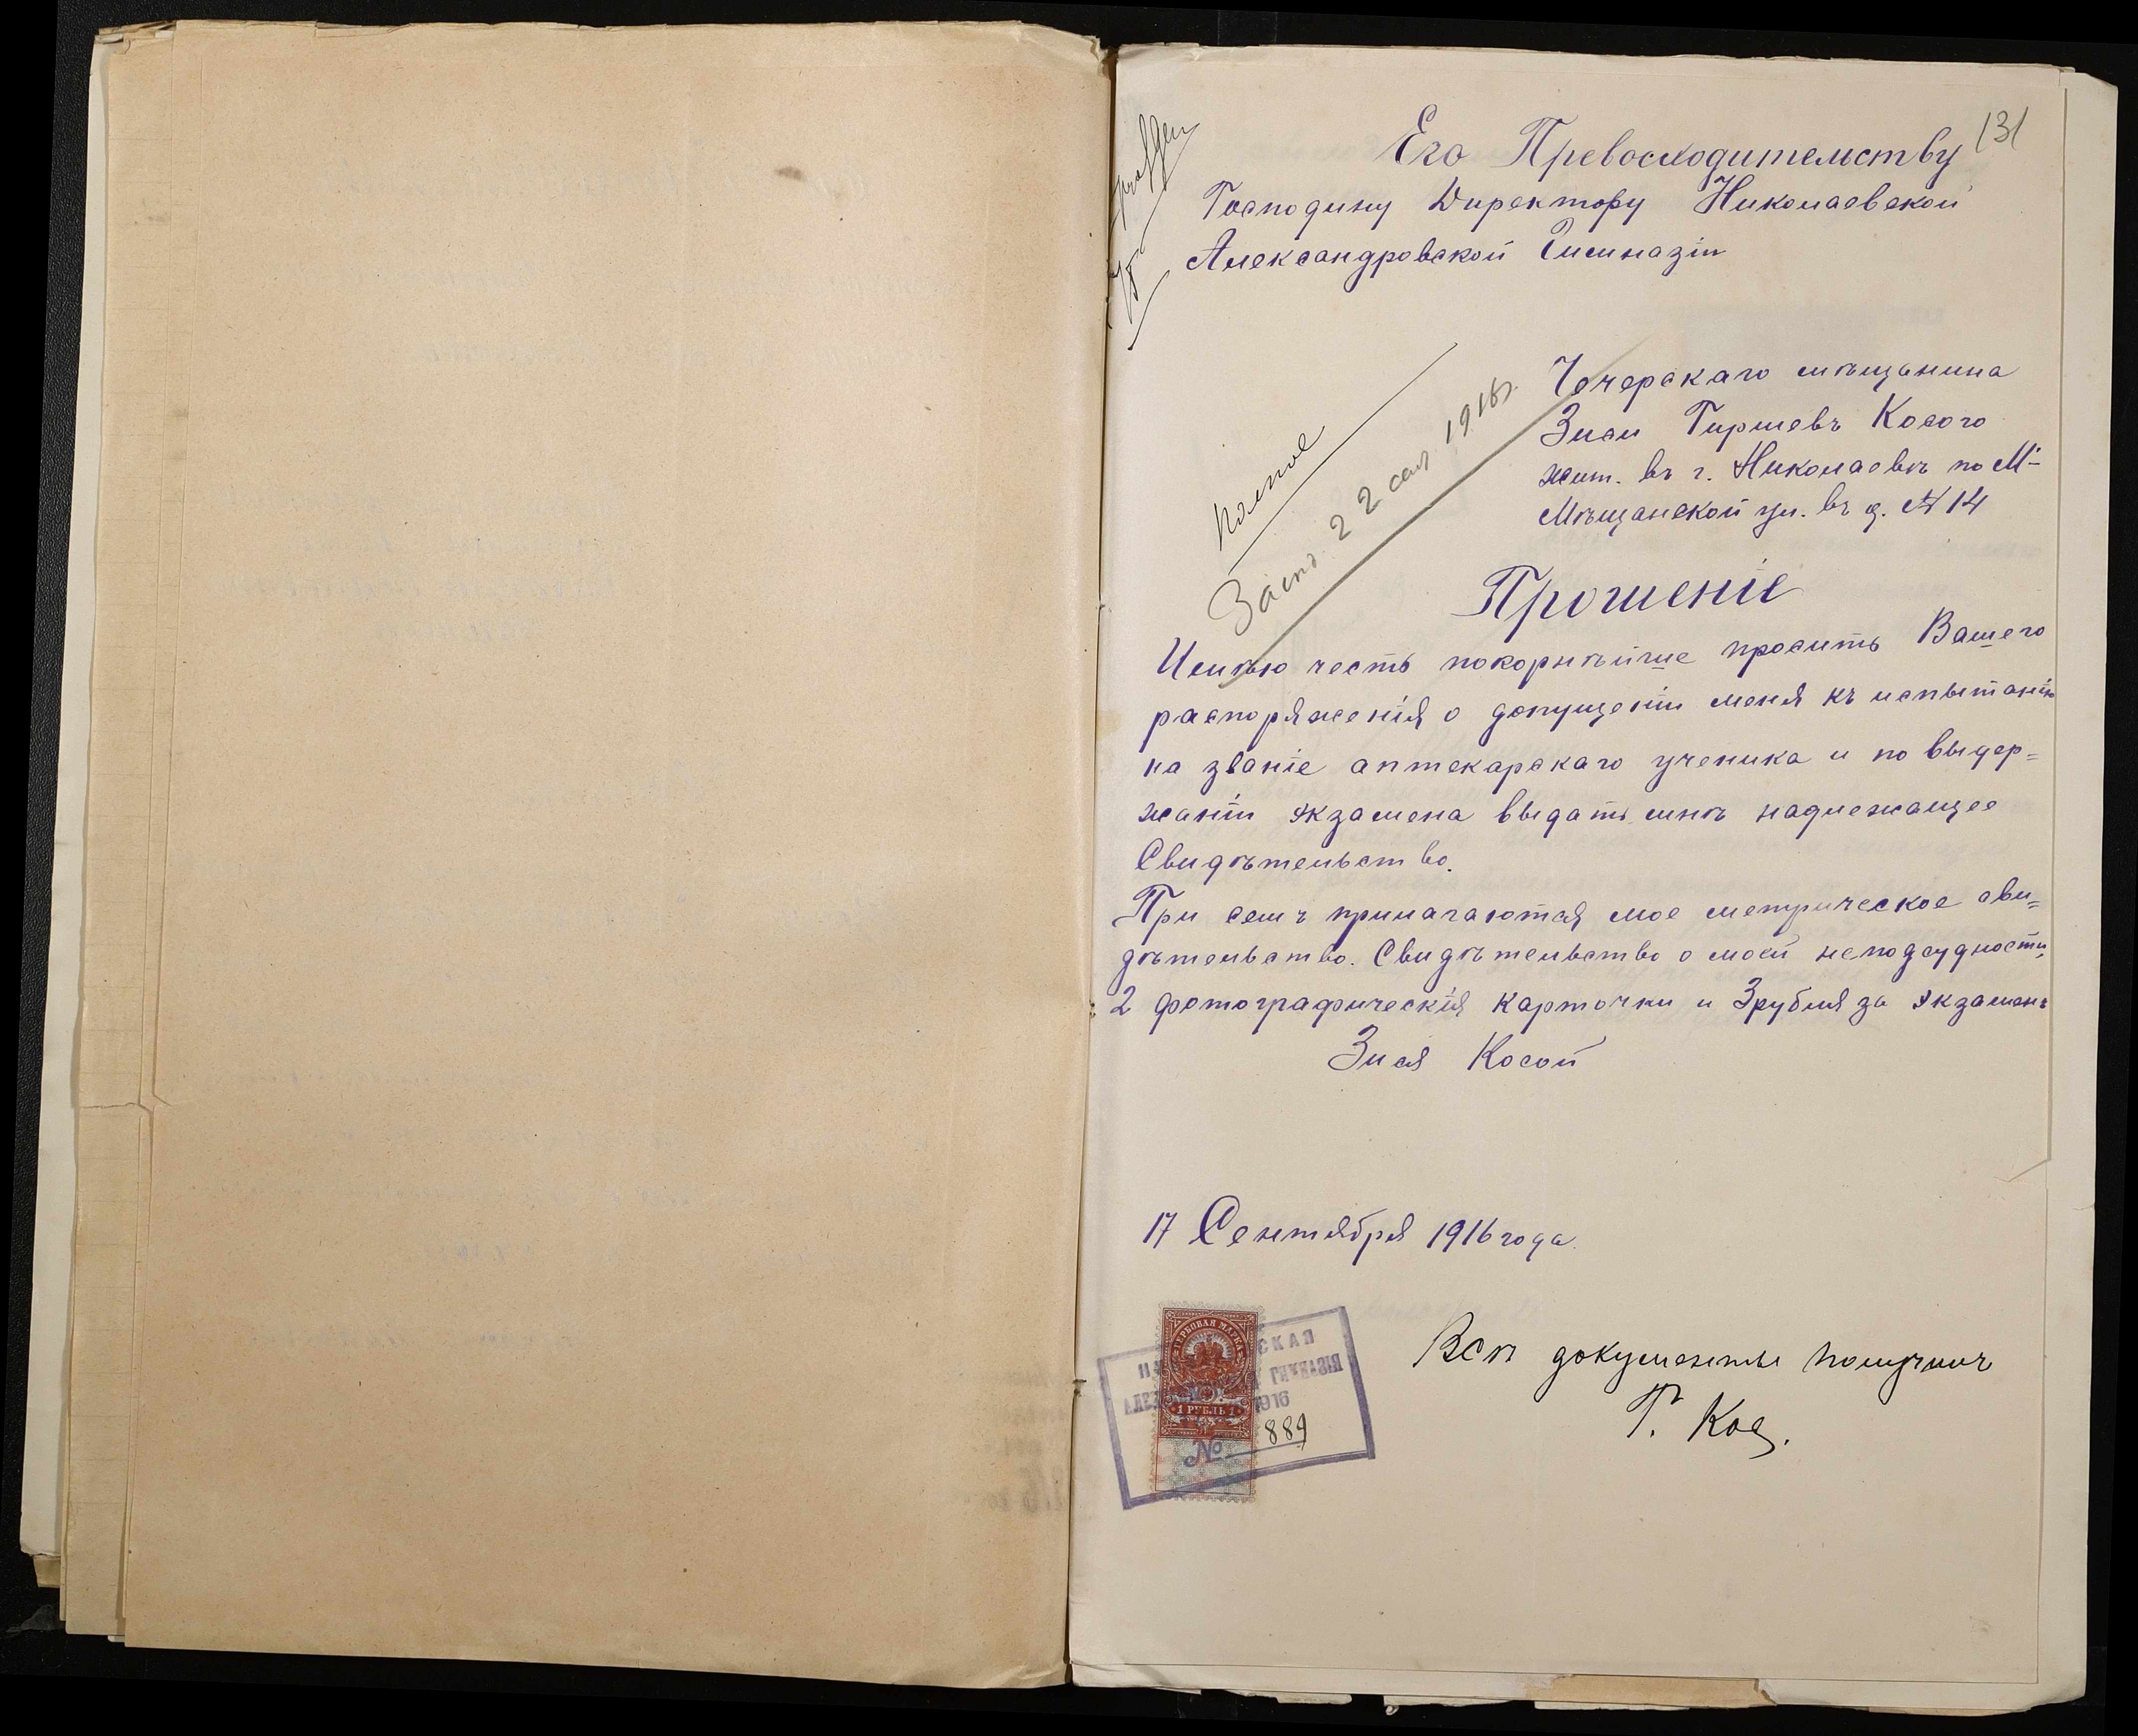 131
Его Превосходительству
Господину Директору Николаевской
Александровской Гимназіи
Чечерскаго мѣщанина
Зиси Гиршевъ Косого
жит. въ г. Николаевѣ по М-
Мѣщанской ул. въ д. № 14
22 сен 1916г.
Прошеніе
Имѣю честь покорнѣйше просить Вашего
распоряженія о допущеніи меня къ испытанію
на званіе аптекарскаго ученика и по выдер=
жаніи экзамена выдать мнѣ надлежащее
Свидѣтельство.
При семъ прилагаются мое метрическое сви=
дѣтельство. Свидѣтельство о моей неподсудности,
2 фотографическія карточки и 3 рубля за экзаменъ
Зися Косой
17 Сентября 1916 года.
ГЕРБОВАЯ МАРКА
1 РУБЛЬ 1
СКАЯ
ГИМНАЗІЯ
1916
№ 889
Всѣ документы получилъ
Г. Кос.